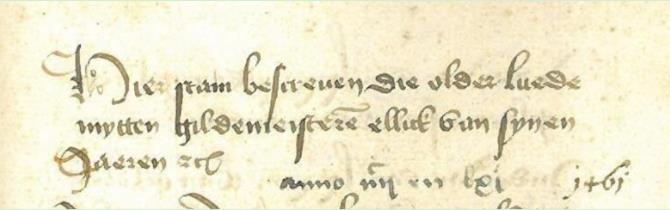 Hier stain bescreven die older luede
mytten gildemeisterē ellick van synen
Jaeren etc
anno iiij en lxj 1461